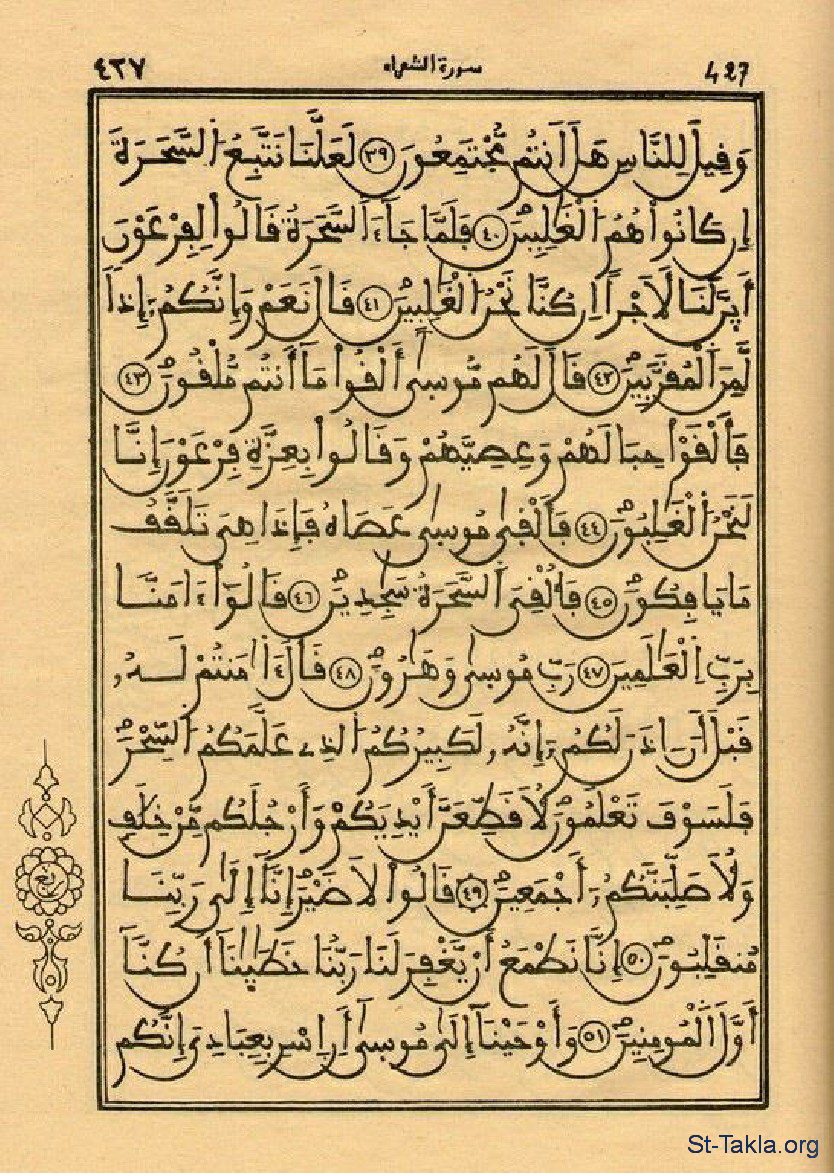 427 سورة الشعراء ٤٢٧
وَقِيلَ لِلنَّاسِ هَلَ اَنتُم مُّجْتَمِعُونَ ٣٩ لَعَلَّنَا نَتَّبِعُ السَّحَرَةَ
إِن كَانُواْ هُمُ الْغَٰلِبِينَ ٤٠ فَلَمَّا جَآءَ السَّحَرَةُ قَالُواْ لِفِرْعَوْنَ
أَىِٕنَّ لَنَا لَأَجْراً اِن كُنَّا نَحْنُ الْغَٰلِبِينَ ٤١ قَالَ نَعَمْ وَإِنَّكُمُۥٓ إِذاً
لَّمِنَ الْمُقَرَّبِينَ ٤٢ قَالَ لَهُم مُّوسِىٰٓ أَلْقُواْ مَآ أَنتُم مُّلْقُونَ ٤٣
فَأَلْقَوْاْ حِبَالَهُمْ وَعِصِيَّهُمْ وَقَالُواْ بِعِزَّةِ فِرْعَوْنَ إِنَّا
لَنَحْنُ الْغَٰلِبُونَ ٤٤ فَأَلْقِىٰ مُوسِىٰ عَصَاهُ فَإِذَا هِىَ تَلَقَّفُ
مَا يَافِكُونَ ٤٥ فَأُلْقِىَ السَّحَرَةُ سَٰجِدِينَ ٤٦ قَالُوٓاْ ءَامَنَّا
بِرَبِّ اِلْعَٰلَمِينَ ٤٧ رَبِّ مُوسِىٰ وَهَٰرُونَ ٤٨ قَالَ ءَاٰمَنتُمْ لَهُۥ
قَبْلَ أَنَ اٰذَنَ لَكُمُۥٓ إِنَّهُۥ لَكَبِيرُكُمُ الذِے عَلَّمَكُمُ السِّحْرَ
فَلَسَوْفَ تَعْلَمُونَ لَأُقَطِّعَنَّ أَيْدِيَكُمْ وَأَرْجُلَكُم مِّنْ خِلَٰفٍ
وَلَأُصَلِّبَنَّكُمُۥٓ أَجْمَعِينَ ٤٩ قَالُواْ لَا ضَيْرَ إِنَّآ إِلَىٰ رَبِّنَا
مُنقَلِبُونَ ٥٠ إِنَّا نَطْمَعُ أَنْ يَّغْفِرَ لَنَا رَبُّنَا خَطَٰيَٰنَآ أَن كُنَّآ
أَوَّلَ الْمُومِنِينَ ٥١ وَأَوْحَيْنَآ إِلَىٰ مُوسِىٰٓ أَنِ اِسْرِ بِعِبَادِىَ إِنَّكُم
ربع
St-Takla.org